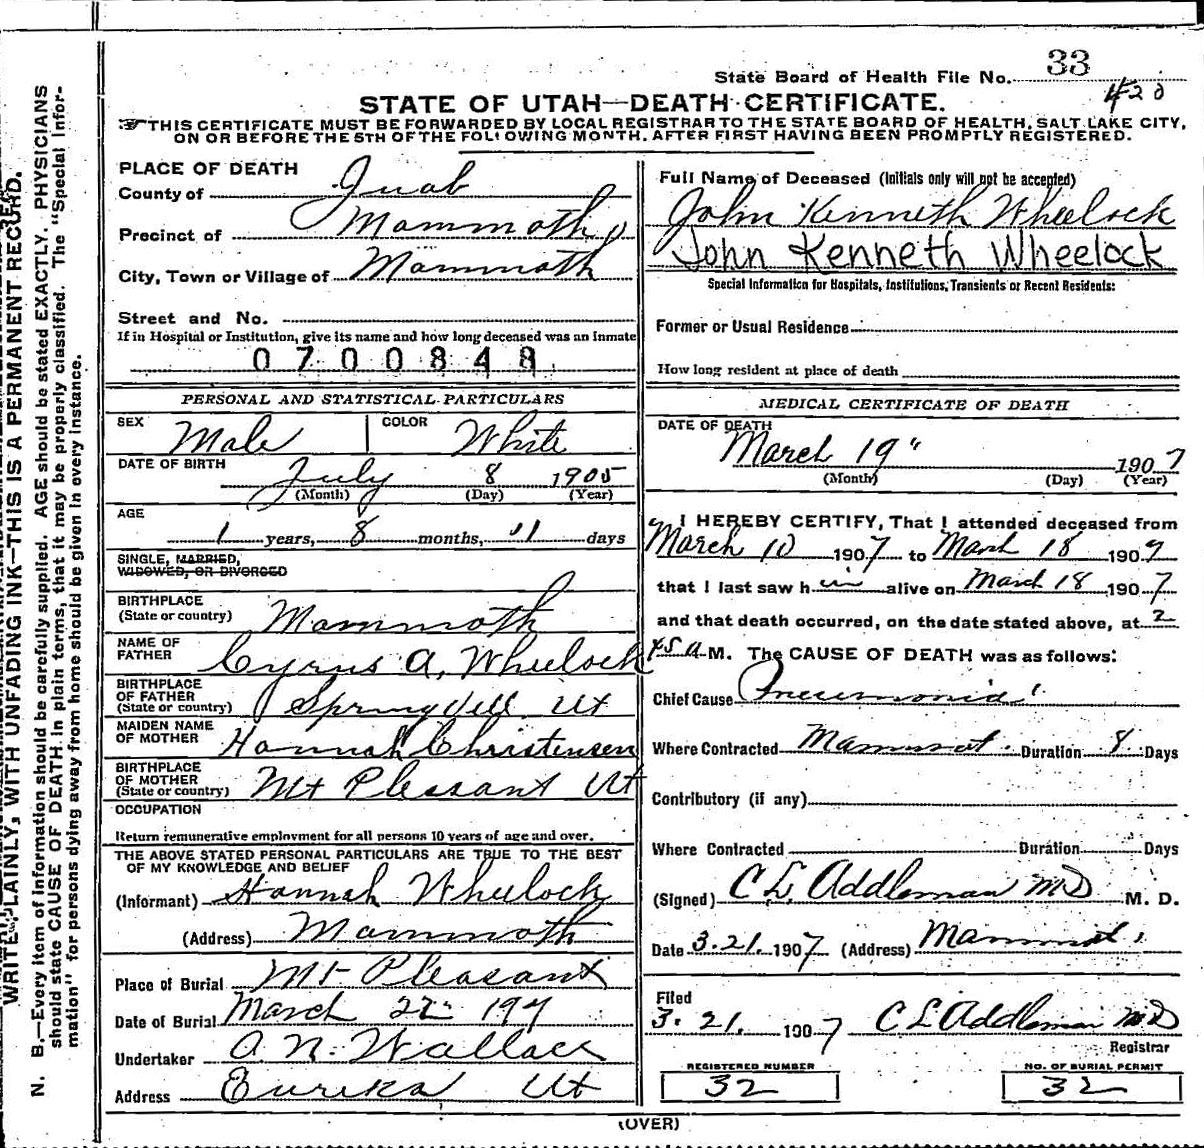 State Board of Health File No. 33
420
STATE OF UTAH—DEATH CERTIFICATE.
THIS CERTIFICATE MUST BE FORWARDED BY LOCAL REGISTRAR TO THE STATE BOARD OF HEALTH, SALT LAKE CITY,
ON OR BEFORE THE 5TH OF THE FOLLOWING MONTH, AFTER FIRST HAVING BEEN PROMPTLY REGISTERED.
PLACE OF DEATH
County of Juab
Precinct of Mammoth
City, Town or Village of Mammoth
Street and No.
If in Hospital or Institution, give its name and how long deceased was an Inmate
0700848
PERSONAL AND STATISTICAL PARTICULARS
SEX Male COLOR White
DATE OF BIRTH July 8 1905
(Month) (Day) (Year)
AGE
1 years, 8 months, 11 days
SINGLE, MARRIED,
WIDOWED, OR DIVORCED
BIRTHPLACE
(State or country) Mammoth
NAME OF
FATHER Cyrus A. Wheelock
BIRTHPLACE
OF FATHER
(State or country) Springville Ut
MAIDEN NAME
OF MOTHER Hannah Christensen
BIRTHPLACE
OF MOTHER
(State or country) Mt Pleasant Ut
OCCUPATION
Return remunerative employment for all persons 10 years of age and over.
THE ABOVE STATED PERSONAL PARTICULARS ARE TRUE TO THE BEST
OF MY KNOWLEDGE AND BELIEF
(Informant) Hannah Wheelock
(Address) Mammoth
Place of Burial Mt Pleasant
Date of Burial March 22 197
Undertaker A. N. Wallace
Address Eureka Ut
Full Name of Deceased (Initials only will not be accepted)
John Kenneth Wheelock
John Kenneth Wheelock
Special Information for Hospitals, Institutions, Transients or Recent Residents:
Former or Usual Residence
How long resident at place of death
MEDICAL CERTIFICATE OF DEATH
DATE OF DEATH
March 19" 1907
(Month) (Day) (Year)
I HEREBY CERTIFY, That I attended deceased from
March 10 1907 to March 18 1907
that I last saw him alive on March 18 1907
and that death occurred, on the date stated above, at 2
45 A M. The CAUSE OF DEATH was as follows:
Chief Cause Pneumonia
Where Contracted Mammoth Duration 8 Days
Contributory (if any)
Where Contracted Duration Days
(Signed) C L Addleman MD M. D.
Date 3.21. 1907 (Address) Mammoth
Filed
3.21. 1907 C L Addleman MD
Registrar
REGISTERED NUMBER
32
NO. OF BURIAL PERMIT
32
(OVER)
WRITE PLAINLY, WITH UNFADING INK—THIS IS A PERMANENT RECORD.
N. B.—Every item of Information should be carefully supplied. AGE should be stated EXACTLY. PHYSICIANS
should state CAUSE OF DEATH in plain terms, that it may be properly classified. The "Special Infor-
mation" for persons dying away from home should be given in every instance.